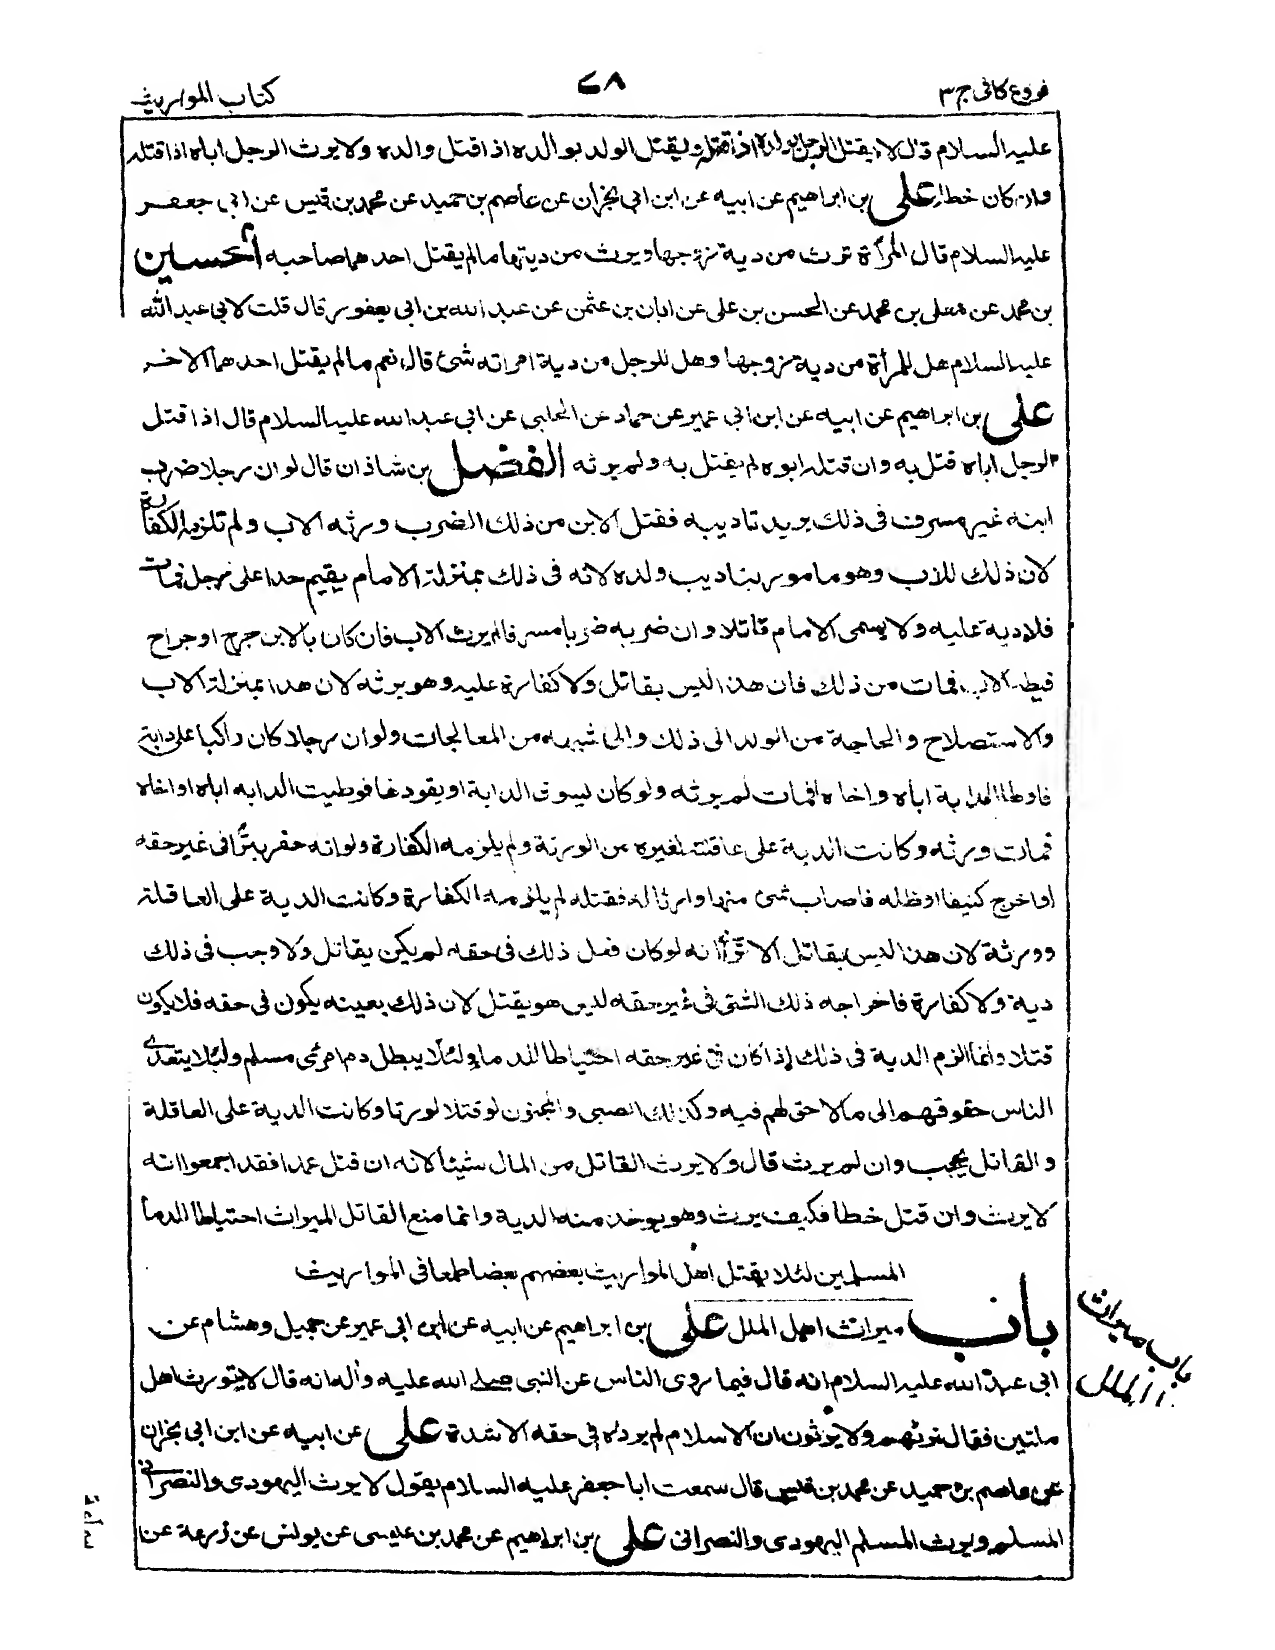 فروع كافى ج ٣
٧٨
كتاب المواريث
عليه السلام قال لا يقتل الرجل بولده اذا قتله ويقتل الولد بوالده اذا قتل والده ولا يرث الرجل اباه اذا قتله
وان كان خطاء على بن ابراهيم عن ابيه عن ابن ابى نجران عن عاصم بن حميد عن محمد بن قيس عن ابى جعفر
عليه السلام قال المرأة ترث من دية زوجها ويرث من ديتها ما لم يقتل احدهما صاحبه الحسين
بن محمد عن معلى بن محمد عن الحسن بن على عن ابان بن عثمن عن عبد الله بن ابى يعفور قال قلت لابى عبد الله
عليه السلام هل للمرأة من دية زوجها وهل للرجل من دية امراته شئ قال نعم ما لم يقتل احدهما الاخر
على بن ابراهيم عن ابيه عن ابن ابى عمير عن حماد عن الحلبى عن ابى عبد الله عليه السلام قال اذا قتل
الرجل اباه قتل به وان قتله ابوه لم يقتل به ولم يرثه الفضل بن شاذان قال لو ان رجلا ضرب
ابنه غير مسرف فى ذلك يريد تاديبه فقتل الابن من ذلك الضرب ورثه الاب ولم تلزمه الكفارة
لان ذلك للاب وهو مامور بتاديب ولده لانه فى ذلك بمنزلة الامام يقيم حدا على رجل فمات
فلا دية عليه ولا يسمى الامام قاتلا وان ضربه ضربا مسرفا لم يرث الاب فان كان بالابن جرح او جراح
فبط الاب فمات من ذلك فان هذا ليس بقاتل ولا كفارة عليه وهو يرثه لان هذا بمنزلة الاب
والاستصلاح والحاجة من الولد الى ذلك والى شبهه من المعالجات ولو ان رجلا كان راكبا على دابة
فاوطا الدابة اباه واخاه فمات لم يرثه ولو كان يسوق الدابة او يقودها فوطيت الدابه اباه او اخاه
فمات ورثه وكانت الدية على عاقلته لغيره من الورثة ولم يلزمه الكفارة ولو انه حفر بئرا فى غير حقه
او اخرج كنيفا او ظله فاصاب شئ منها وارثا له فقتله لم يلزمه الكفارة وكانت الدية على العاقلة
وورثة لان هذا ليس بقاتل الا ترأ انه لو كان فعل ذلك فى حقه لم يكن بقاتل ولا وجب فى ذلك
دية ولا كفارة فاخراجه ذلك الشئ فى غير حقه ليس هو بقتل لان ذلك بعينه يكون فى حقه فلا يكون
قتلا وانما الزم الدية فى ذلك إذا كان فى غير حقه احتياطا للدماء ولئلا يبطل دم امرئ مسلم ولئلا يتعدى
الناس حقوقهم الى ما لا حق لهم فيه وكذلك الصبى والمجنون لو قتلا لورثا وكانت الدية على العاقلة
والقاتل يحجب وان لم يرث قال ولا يرث القاتل من المال شيئا لانه ان قتل عمدا فقد اجمعوا انه
لا يرث وان قتل خطا فكيف يرث وهو يوخذ منه الدية وانما منع القاتل الميراث احتياطا لدماء
المسلمين لئلا يقتل اهل المواريث بعضهم بعضا طمعا فى المواريث
باب ميراث اهل الملل على بن ابراهيم عن ابيه عن ابن ابى عمير عن جميل وهشام عن
ابى عبد الله عليه السلام انه قال فيما روى الناس عن النبى صلى الله عليه وآله انه قال لا يتورث اهل
ملتين فقال نرثهم ولا يرثون ان الاسلام لم يرده فى حقه الا شدة على عن ابيه عن ابن ابى نجران
عن عاصم بن حميد عن محمد بن قيس قال سمعت ابا جعفر عليه السلام يقول لا يرث اليهودى والنصرانى
المسلم ويرث المسلم اليهودى والنصرانى على بن ابراهيم عن محمد بن عيسى عن يونس عن زرعة عن
باب ميراث
الملل